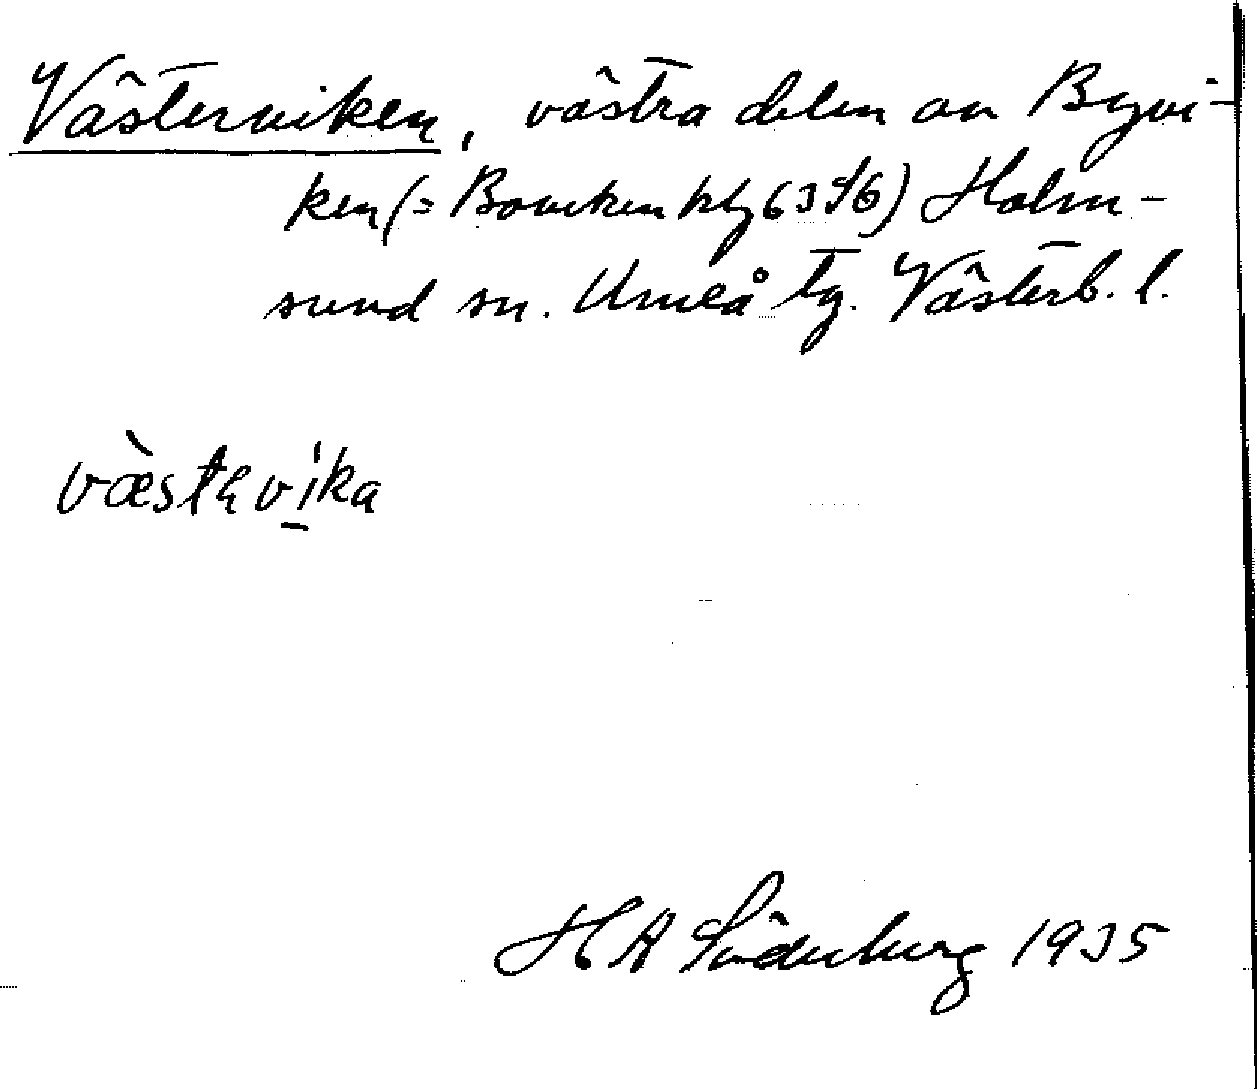 Västerviken, västra delen av Byvi-
ken (= Boviken kbl 63 S6) Holm-
sund sn. Umeå tg. Västerb. l.
væstavika
H A Söderberg 1935